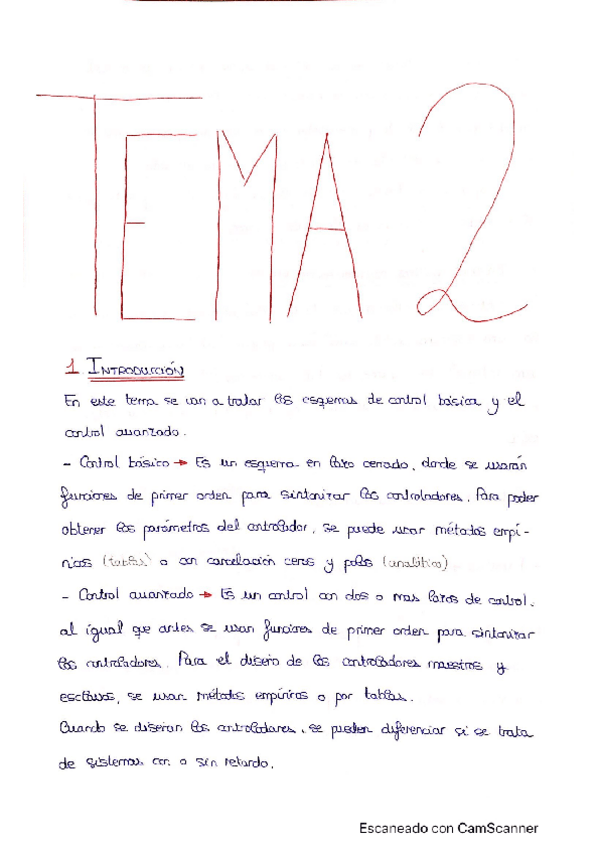 TEMA 2
1 INTRODUCCIÓN
En este tema se van a tratar los esquemas de control básico y el
control avanzado.
- Control básico → Es un esquema en lazo cerrado, donde se usarán
funciones de primer orden para sintonizar los controladores. Para poder
obtener los parámetros del controlador, se puede usar métodos empí-
ricos (tablas) o con cancelación ceros y polos (analítico)
- Control avanzado → Es un control con dos o mas lazos de control,
al igual que antes se usan funciones de primer orden para sintonizar
los controladores. Para el diseño de los controladores maestros y
esclavos, se usan métodos empíricos o por tablas.
Cuando se diseñan los controladores, se pueden diferenciar si se trata
de sistemas con o sin retardo.
Escaneado con CamScanner